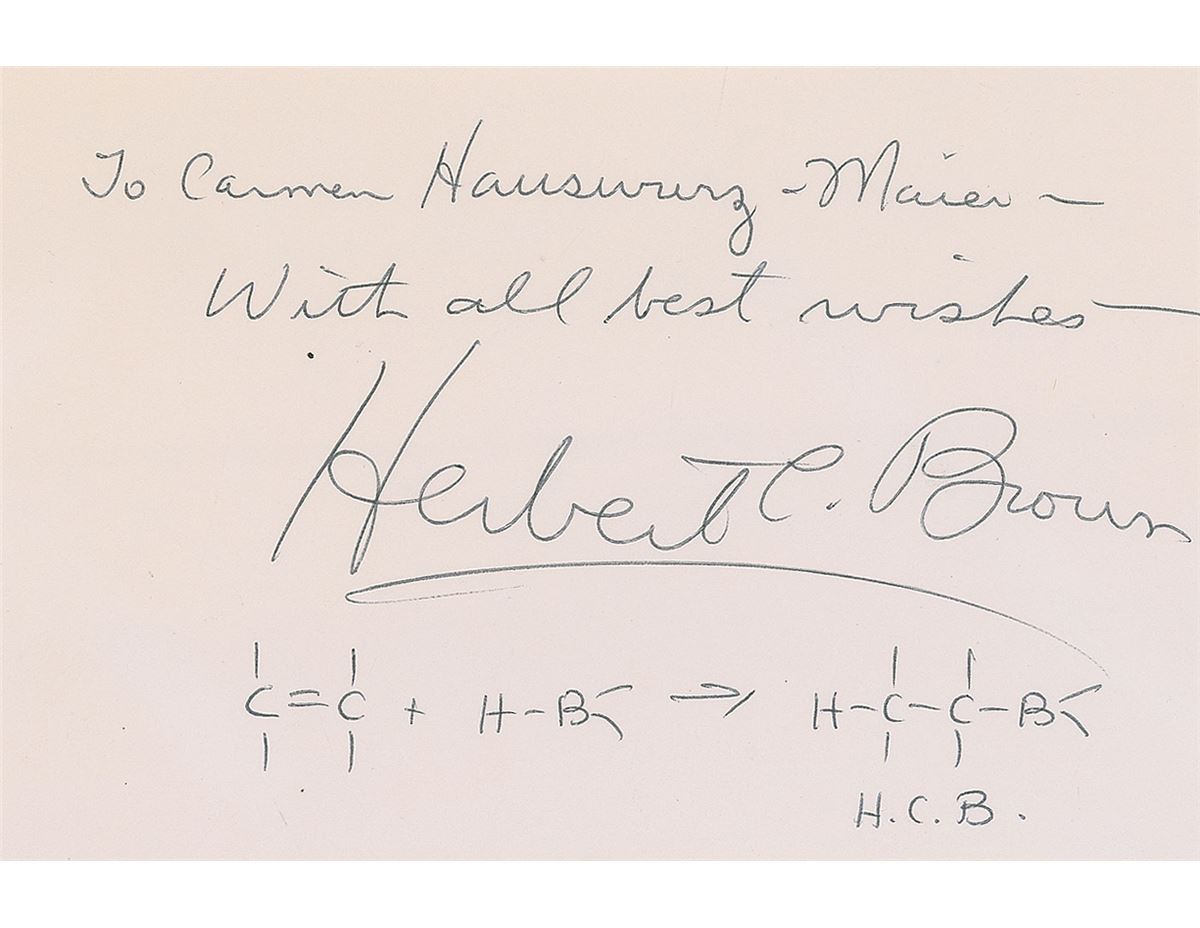 To Carmen Hauswurz - Maier -
With all best wishes -
Herbert C. Brown
C=C + H-B< → H-C-C-B<
H.C.B.